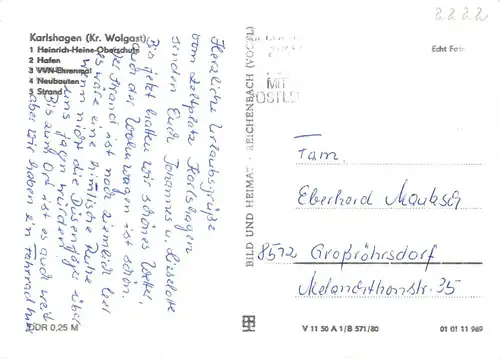 2222
Karlshagen (Kr. Wolgast)
1 Heinrich-Heine-Oberschule
2 Hafen
3 VVN-Ehrenmal
4 Neubauten
5 Strand
Echt Foto
Herzliche Urlaubsgrüße
vom Zeltplatz Karlshagen
senden Euch Johannes u. Liselotte
Bis jetzt hatten wir schönes Wetter,
auch der Wohnwagen ist schön.
Der Strand ist noch ziemlich leer
es wäre eine himmlische Ruhe
wenn nicht die Düsenjäger über
uns jagen würden.
Bis zum Ort ist es auch weit
aber wir haben ein Fahrrad hier
DDR 0,25 M
BILD UND HEIMAT · REICHENBACH (VOGTL)
MIT
POSTL
Fam.
Eberhard
8512 Großröhrsdorf
Melanchthonstr. 35
V 11 50 A 1/B 571/80
01 01 11 969